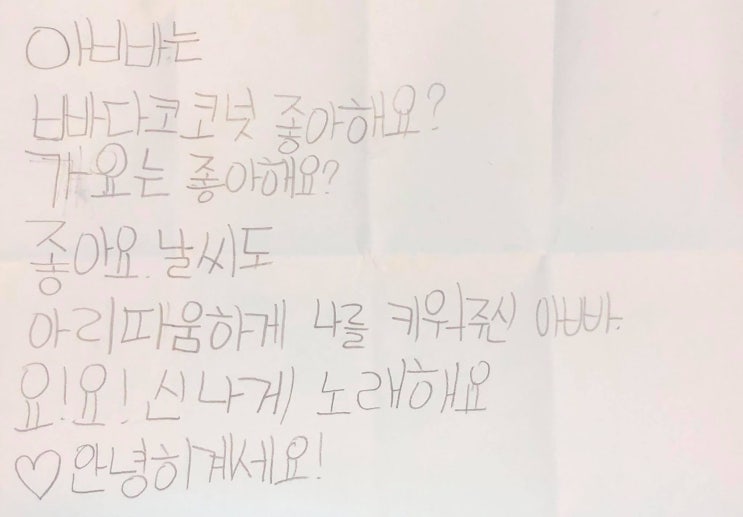 아빠는
빠다코코넛 좋아해요?
가요는 좋아해요?
좋아요. 날씨도
아리따움하게 나를 키워주신 아빠.
요!요! 신나게 노래해요
♡안녕히계세요!